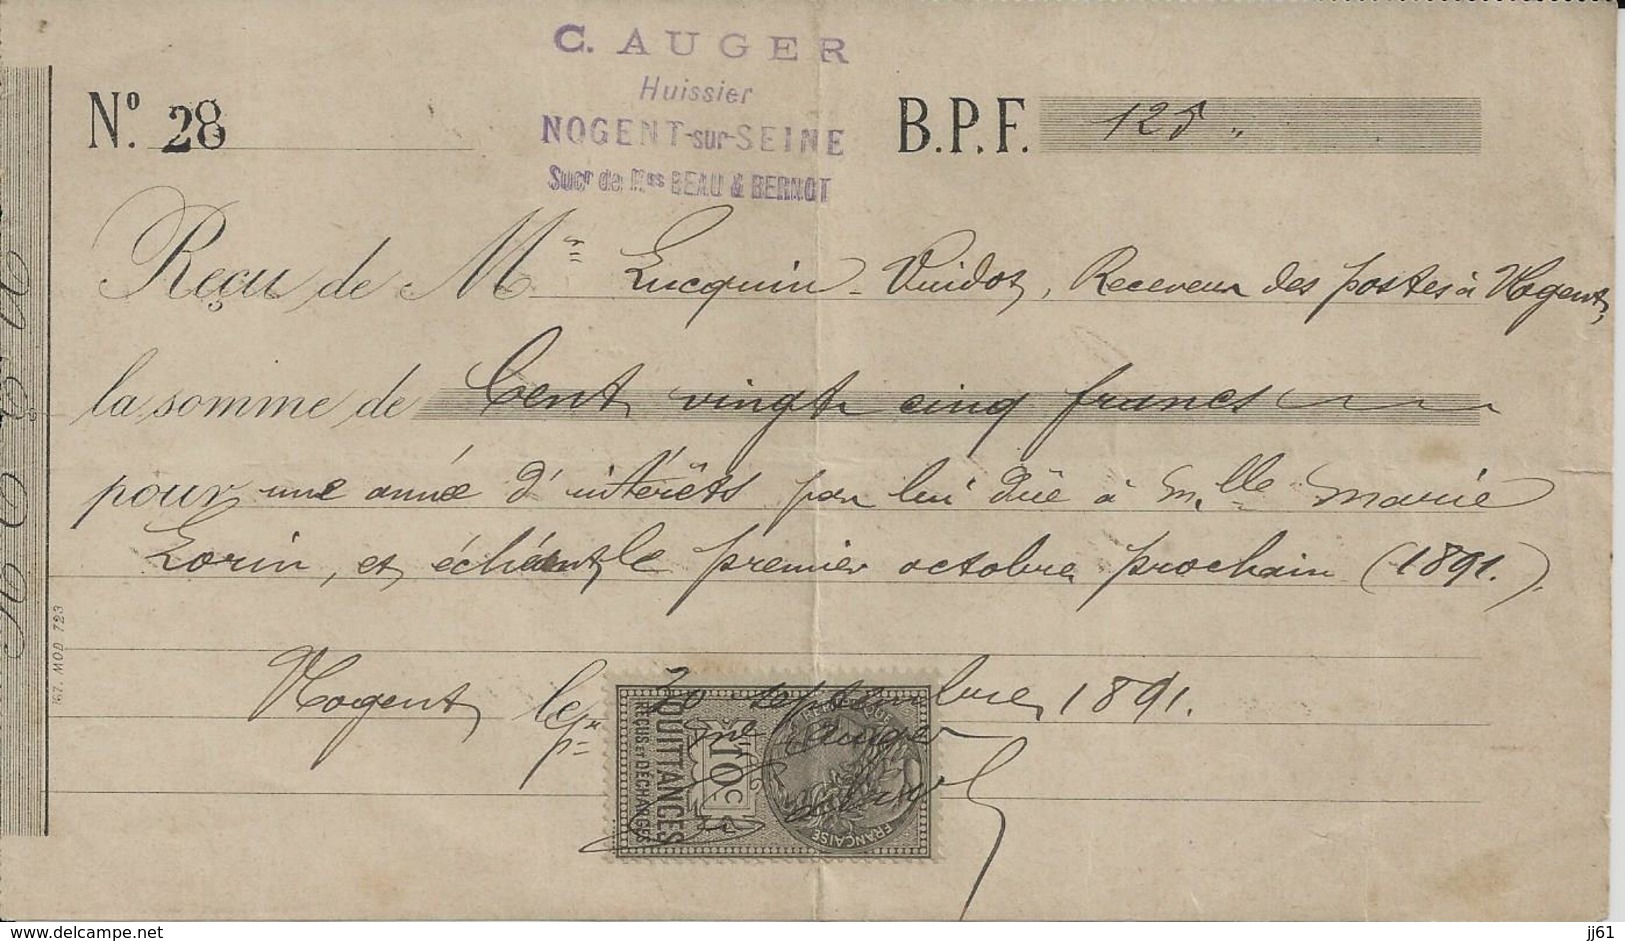 C. AUGER
Huissier
NOGENT-sur-SEINE
Sucr de Mes BEAU & BERNOT
No. 28
B.P.F. 125 "
Reçu de Mr Lucquin-Vuidot, Receveur des postes à Nogent,
la somme de Cent vingt cinq francs
pour une année d'intérêts par lui dûe à Mlle Marie
Lorin, et échéant le premier octobre prochain (1891.).
Nogent, le 30 septembre 1891.
pr Me Auger
QUITTANCES
REÇUS ET DÉCHARGES
10 C
REPUBLIQUE
FRANÇAISE
MOD 723
delcampe.net
jj61